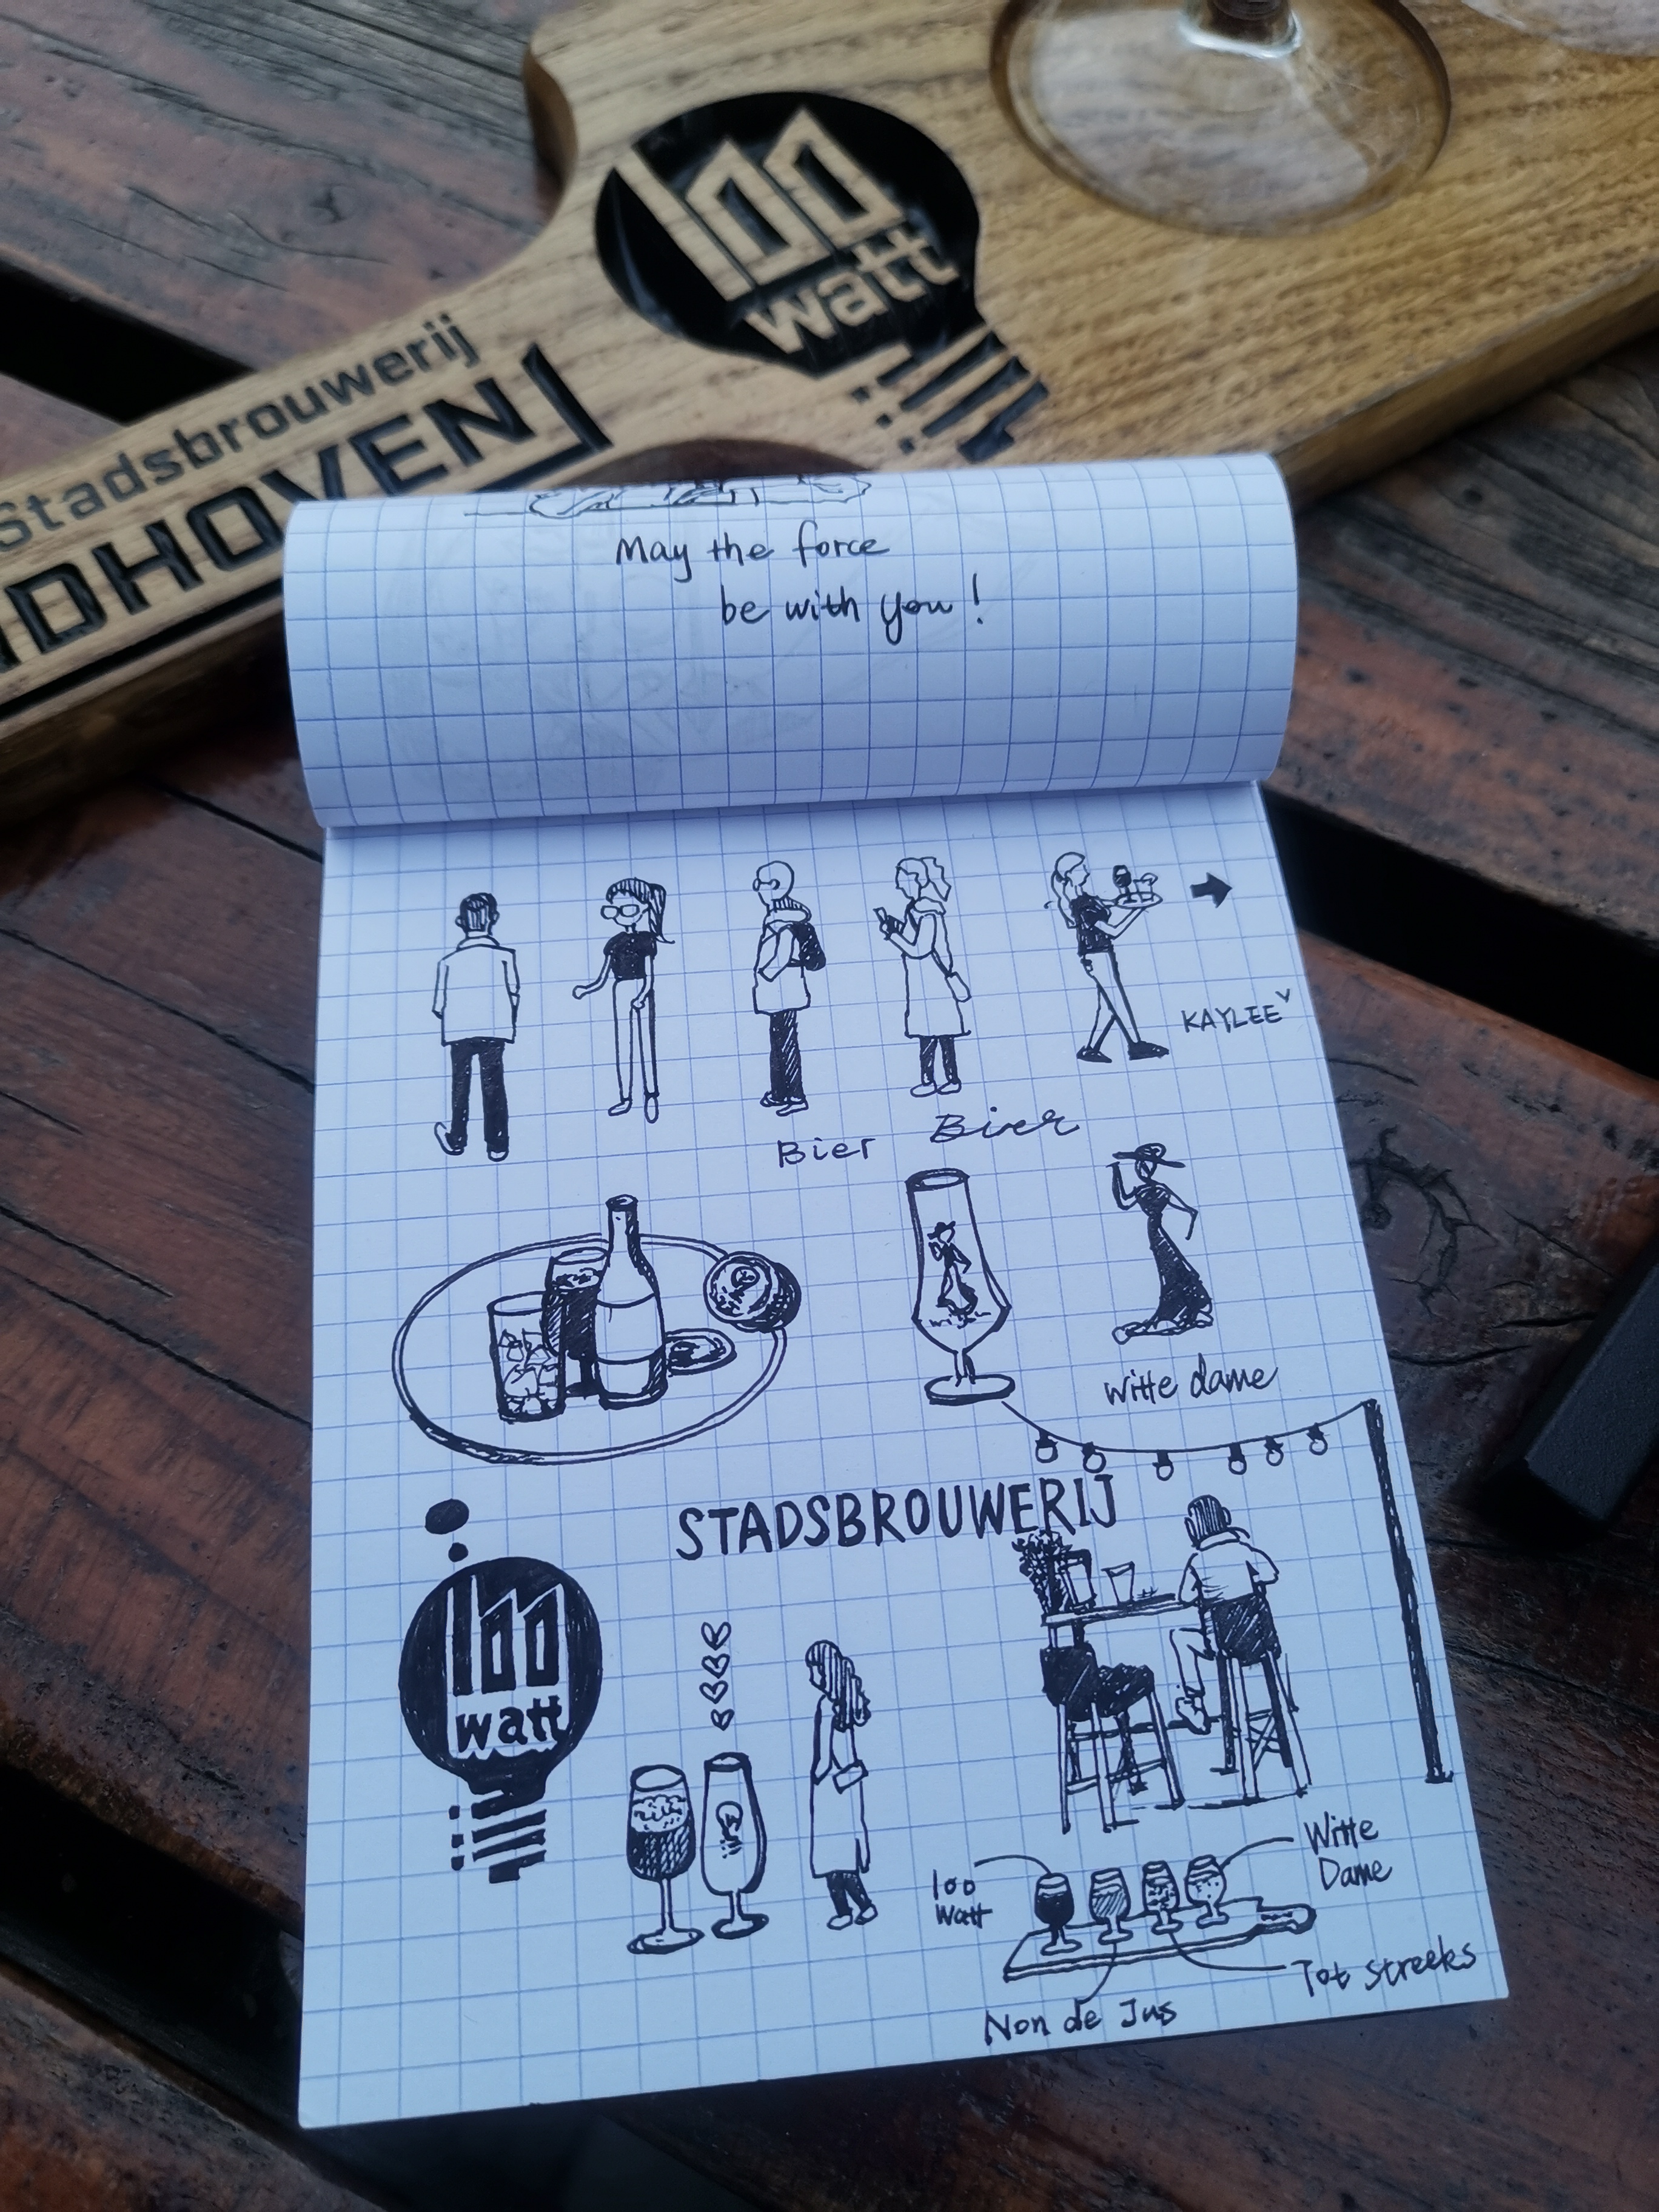 100
watt
Stadsbrouwerij
NDHOVEN
May the force
be with you!
KAYLEE
Bier
Bier
witte dame
STADSBROUWERIJ
100
watt
100
watt
Witte
Dame
Tot Streeks
Non de Jus